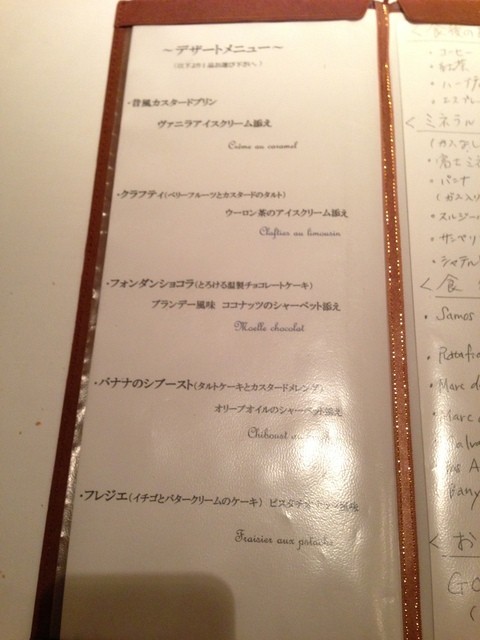 ～デザートメニュー～
(以下より1品お選び下さい。)
・昔風カスタードプリン
ヴァニラアイスクリーム添え
Crème au caramel
・クラフティ(ベリーフルーツとカスタードのタルト)
ウーロン茶のアイスクリーム添え
Claftier au limousin
・フォンダンショコラ(とろける温製チョコレートケーキ)
ブランデー風味 ココナッツのシャーベット添え
Moelle chocolat
・バナナのシブースト(タルトケーキとカスタードメレンゲ)
オリーブオイルのシャーベット添え
Chiboust
・フレジエ(イチゴとバタークリームのケーキ) ピスタチオ 風味
Fraisier aux pistache
・コーヒー
・紅茶
・ハーブティ
・エスプレ
<ミネラル
(ガスなし
・富士ミネ
・パンナ
(ガス入り
・スルジー
・サンペリ
・シャテル
<食
・Samos
・Marc d
・Marc
Bany
<お